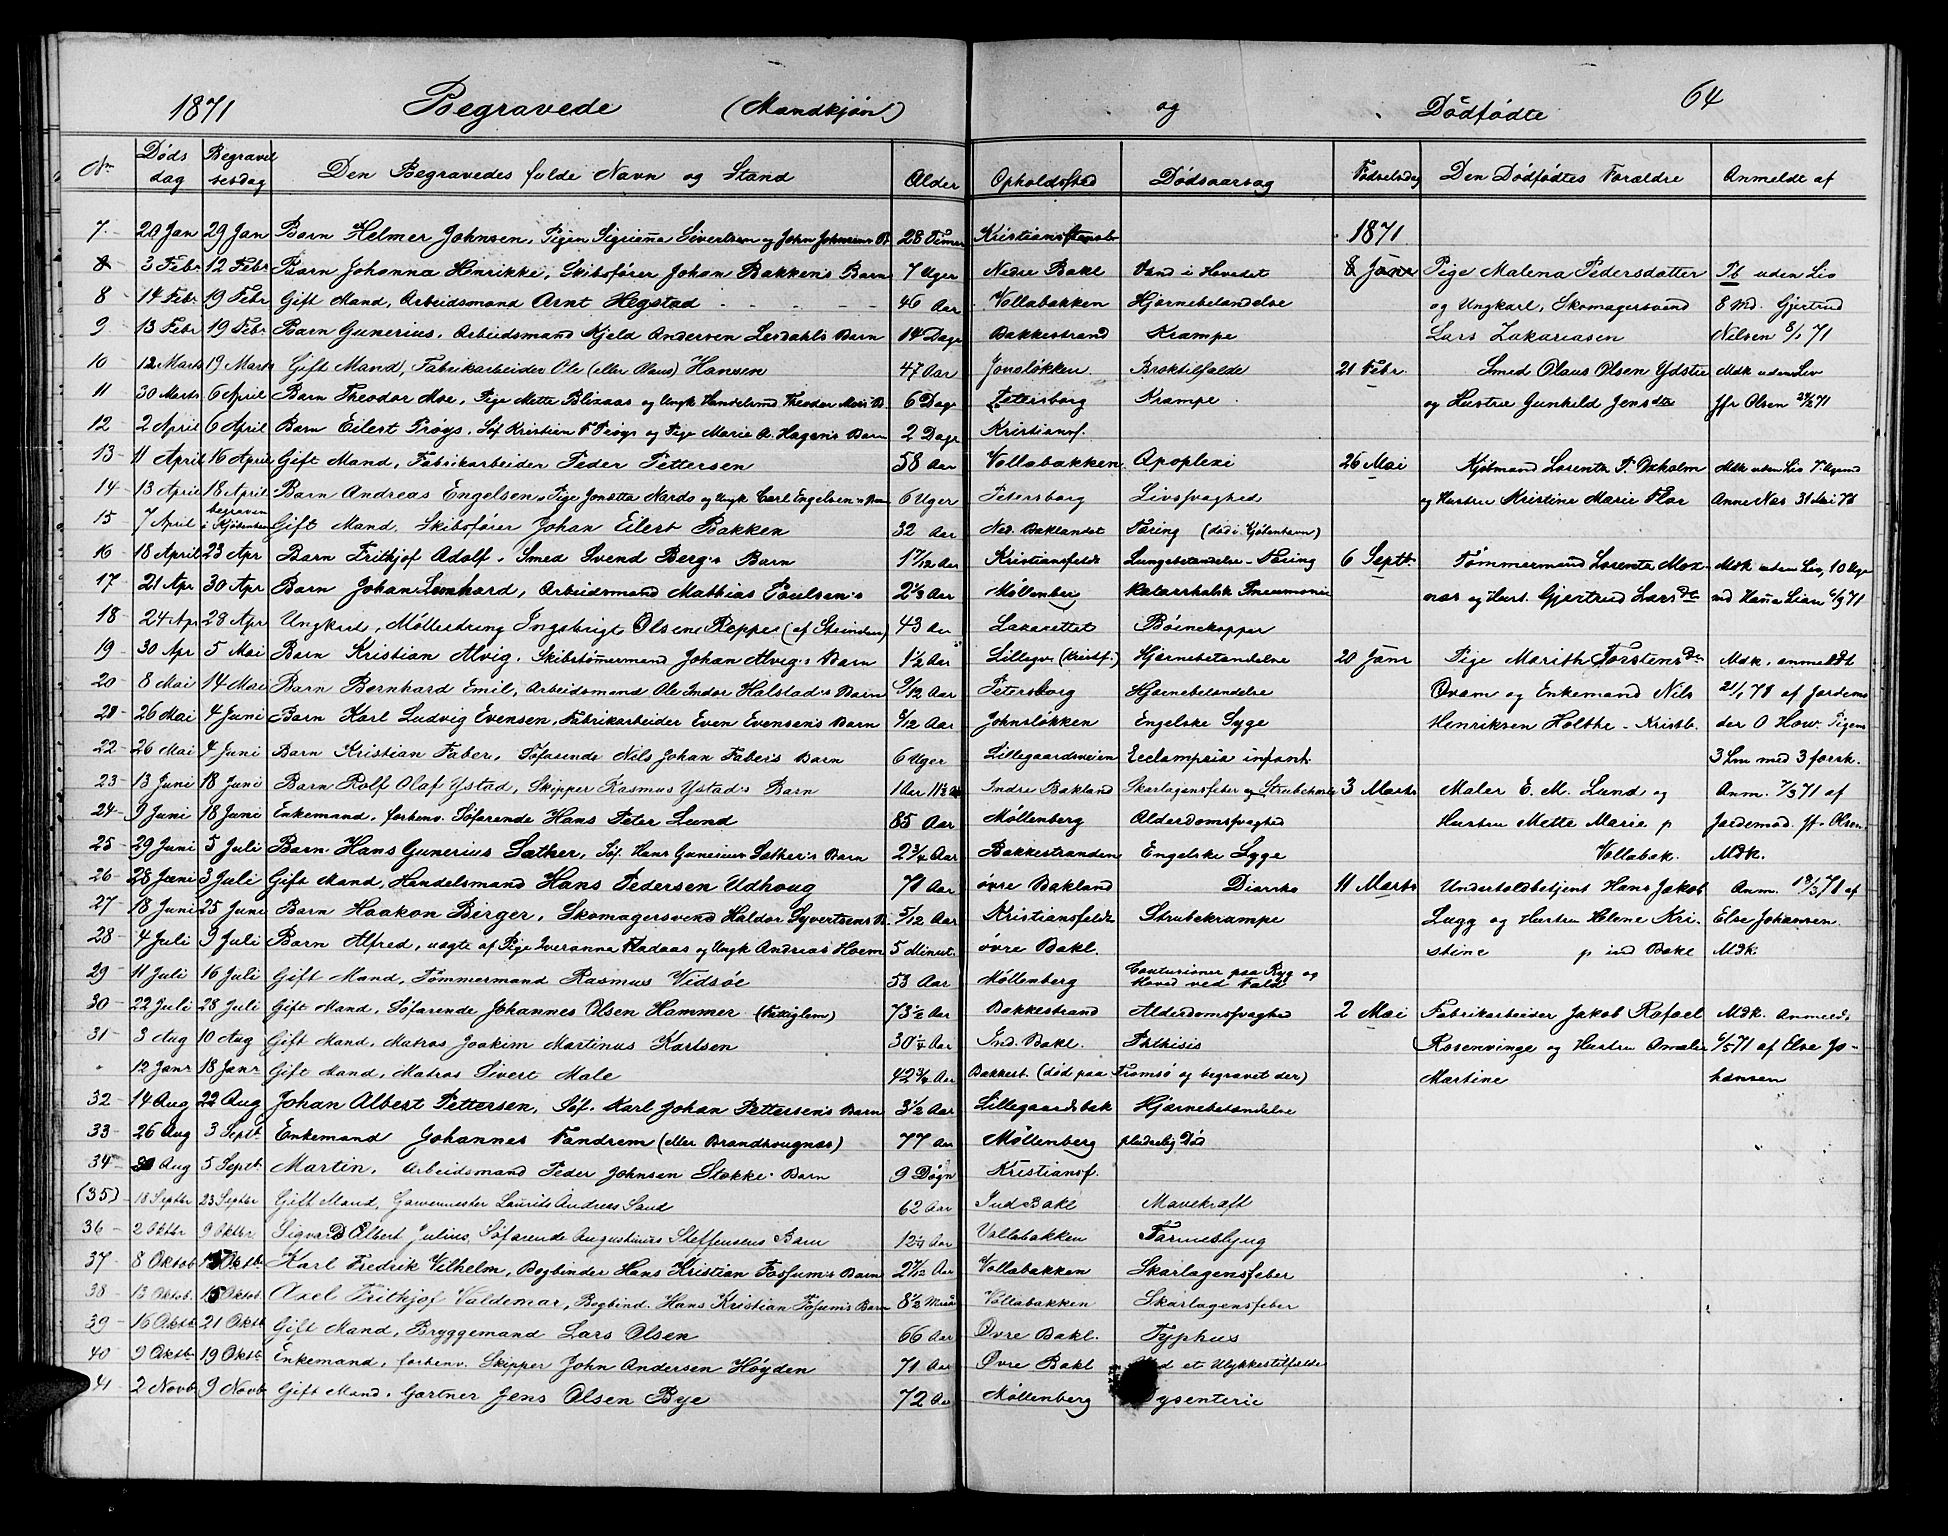 1871 Begravede (Mandkjøn) og Dødfødte 64
Nr. Døds dag Begravelsesdag Den Begravedes fulde Navn og Stand Alder Opholdssted Dødsaarsag Fødselsdag Den Dødfødtes Forældre Anmeldt af
7. 20 Jan 29 Jan Barn Helmer Johnsen, Pigen Sivertsen og John Johnsens B. 28 Timer 1871
8 3 Febr 12 Febr Barn Johanna Henrikke, Skibsfører Johan Bakken's Barn 7 Uger Nedre Bakl Vand i Hovedet 8 Janr Pige Malena Pedersdatter Pb uden Liv
8 14 Febr 19 Febr Gift Mand, Arbeidsmand Arnt Hegstad 46 Aar Vollabakken Hjernebetændelse og Ungkarl, Skomagersvend 8 Md. Gjertrud
9 13 Febr 19 Febr Barn Gunerius, Arbeidsmand Kjeld Andersen Lerdahls Barn 14 Dage Bakkestrand Krampe Lars Zakariasen Nilsen 8/1 71
10 12 Marts 19 Marts Gift Mand, Fabrikarbeider Ole (eller Olaus) Hansen 47 Aar Jonsløkken Broktilfælde 21 Febr. Smed Olaus Olsen Ydstie Mdk uden Liv
11 30 Marts 6 April Barn Theodor Moe, Pige Mette og Ungk Handelsmd Theodor Moes B. 6 Dage Petersborg Krampe og Hustru Gunhild Jensdtr Jfr Olsen 21/2 71
12 2 April 6 April Barn Eilert Prøys, Søf Kristian Prøys og Pige Marie A. Hagen's Barn 2 Dage Kristiansf.
13 11 April 16 April Gift Mand, Fabrikarbeider Peder Pettersen 58 Aar Vollabakken Apoplexi 26 Mai Kjøbmand Lorents P. Oxholm Mdk uden Liv
14 13 April 18 April Barn Andreas Engelsen, Pige Jonetta Nards og Ungk Carl Engelsen's Barn 6 Uger Petersborg Livssvaghed og Hustru Kristine Marie Flor Anne Næs 31 Mai 71
15 7 April begraven i Kjøbenhavn Gift Mand, Skibsfører Johan Eilert Bakken 32 Aar Ned. Baklandet Tæring (død i Kjøbenhavn)
16 18 April 23 Apr Barn Frithjof Adolf, Smed Svend Berg's Barn 1 7/12 Aar Kristiansfeldt Lungebetændelse - Tæring 6 Septb. Tømmermand Lorents Mox- Mdk uden Liv, 10 Uger
17 21 Apr 30 Apr Barn Johan Leonhard, Arbeidsmand Mathias Poulsen's 2 1/3 Aar Møllenberg katarrhalsk Pneumonie næs og Hust. Gjertrud Larsdtr md Hana Lian 6/9 71
18 24 Apr 28 Apr Ungkarl, Mølledreng Ingebrigt Olsen Reppe (af Strinden) 43 Aar Lazarettet Børnekopper
19 30 Apr 5 Mai Barn Kristian Alvig, Skibstømmermand Johan Alvig's Barn 1 1/2 Aar Lillegv. (Kristf.) Hjernebetændelse 20 Janr Pige Marith Torstensdtr Mdk, anmeldt
20 8 Mai 14 Mai Barn Bernhard Emil, Arbeidsmand Ole Indor Halstad's Barn 9/12 Aar Petersborg Hjernebetændelse Qvam og Enkemand Nils 21/1 71 af Jordemo-
21 26 Mai 4 Juni Barn Karl Ludvig Evensen, Fabrikarbeider Even Evensen's Barn 8/12 Aar Johnsløkken Engelske Syge Henriksen Holthe - Kristb. der O How. Pigens
22 26 Mai 4 Juni Barn Kristian Faber, Søfarende Nils Johan Faber's Barn 6 Uger Lillegaardsveien Ecclampsia infant. 3 Lm med 3 forsk.
23 13 Juni 18 Juni Barn Rolf Olaf Ystad, Skipper Rasmus Ystad's Barn 1 Aar 11 1/2 M Indre Bakland Skarlagensfeber og Strubehoste 3 Marts Maler E. M. Lund og Anm. 7/3 71 af
24 9 Juni 18 Juni Enkemand, forhenv. Søfarende Hans Peter Lund 85 Aar Møllenberg Alderdomssvaghed Hustru Mette Marie p Jordemod. Jfr. Olsen
25 29 Juni 5 Juli Barn Hans Gunerius Sæther, Søf. Hans Gunerius Sæther's Barn 2 3/4 Aar Bakkestranden Engelske Syge Vollabak. Mdk.
26 28 Juni 3 Juli Gift Mand, Handelsmand Hans Pedersen Udhoug 71 Aar øvre Bakland Diarrhø 11 Marts Underholdbetjent Hans Jakob Anm. 13/3 71 af
27 18 Juni 25 Juni Barn Haakon Birger, Skomagersvend Haldor Syvertsens B. 5/12 Aar Kristiansfeldt Strubekrampe Lugg og Hustru Helene Kri- Else Johansen
28 4 Juli 9 Juli Barn Alfred, uægte af Pige Iveranna Fladaas og Ungk Andreas Hoem 5 Minut. øvre Bakl. stine p ind Bakl Mdk
29 11 Juli 16 Juli Gift Mand, Tømmermand Rasmus Vidsøe 53 Aar Møllenberg Contusioner paa Ryg og Hoved ved Fald
30 22 Juli 28 Juli Gift Mand, Søfarende Johannes Olsen Hammer (Fattiglem) 73 1/2 Aar Bakkestrand Alderdomssvaghed 2 Mai Fabrikarbeider Jakob Rafael Mdk. Anmeldt
31 3 Aug 10 Aug Gift Mand, Matros Joakim Martinus Karlsen 30 1/4 Aar Ind. Bakl. Phthisis Rosenvinge og Hustru Amalie 6/5 71 af Else Jo-
" 12 Janr 18 Janr Gift Mand, Matros Sivert Male 42 3/4 Aar Bakkest. (død paa Tromsø og begravet der) Martine hansen
32 14 Aug 22 Aug Johan Albert Pettersen, Søf. Karl Johan Pettersen's Barn 3 1/2 Aar Lillegaardsbak Hjernebetændelse
33 26 Aug 3 Septb. Enkemand Johannes Fandrem (eller Brandhougnæs) 77 Aar Møllenberg pludselig Død
34 30 Aug 5 Septb. Martin, Arbeidsmand Peder Johnsen Stokke's Barn 9 Døgn Kristiansf.
(35) 18 Septbr 23 Septbr Gift Mand, Garvermester Laurits Andreas Sand 62 Aar Ind Bakl Mavekræft
36 2 Oktbr 9 Oktbr. Sigvard Albert Julius, Søfarende Augustinius Steffensens Barn 12 1/4 Aar Vollabakken Tarmesbyug
37 8 Oktob 15 Oktb. Karl Fredrik Vilhelm, Bogbinder Hans Kristian Fossum's Barn 2 7/12 Aar Vollabakken Skarlagensfeber
38 13 Oktob. 15 Oktob. Axel Frithjof Valdemar, Bogbind. Hans Kristian Fossum's Barn 8 1/2 Maan Vollabakken Skarlagensfeber
39 16 Oktb. 21 Oktb. Gift Mand, Bryggemand Lars Olsen 66 Aar Øvre Bakl. Typhus
40 9 Oktb. 19 Oktb. Enkemand, forhenv. Skipper John Andersen Høyden 71 Aar Øvre Bakl Ved et Ulykkestilfælde
41 2 Novb. 9 Novb. Gift Mand, Gartner Jens Olsen Bye 72 Aar Møllenberg Dysenterie